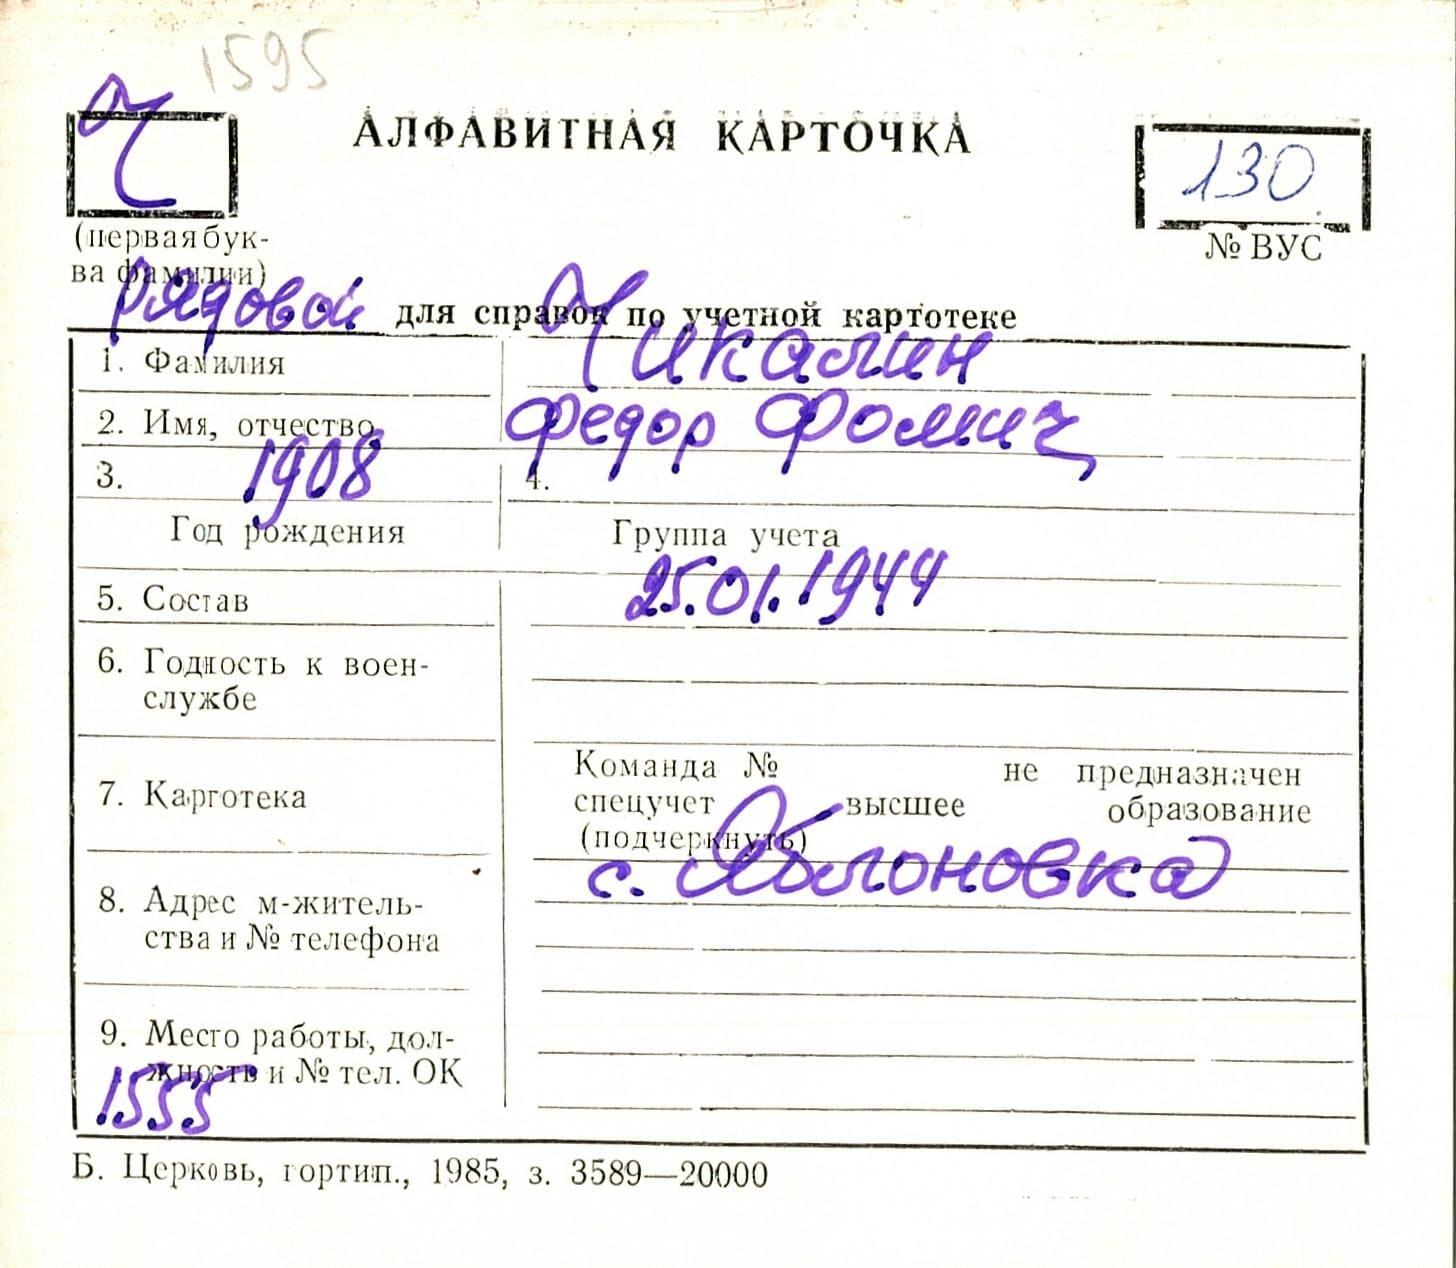 1595
Ч
АЛФАВИТНАЯ КАРТОЧКА
130
(первая бук-
ва фамилии)
№ ВУС
рядовой для справок по учетной картотеке
1. Фамилия Чикалин
2. Имя, отчество Федор Фомич
3. 1908 4.
Год рождения Группа учета
25.01.1944
5. Состав
6. Годность к воен-
службе
Команда № не предназначен
7. Картотека спецучет высшее образование
(подчеркнуть)
с. Яблоновка
8. Адрес м-житель-
ства и № телефона
9. Место работы, дол-
жность и № тел. ОК
1555
Б. Церковь, гортип., 1985, з. 3589—20000